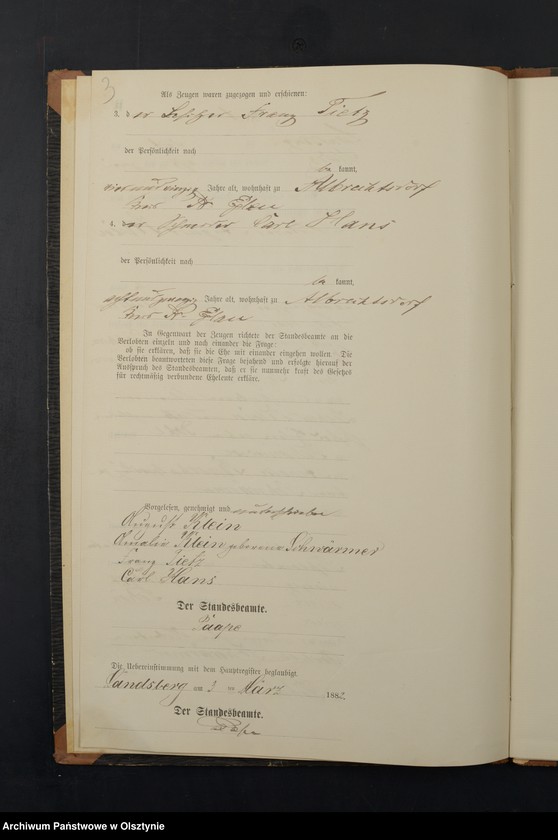 3
Als Zeugen waren zugezogen und erschienen:
3. der Besitzer Franz Tietz
der Persönlichkeit nach
be kannt,
vierundvierzig Jahre alt, wohnhaft zu Albrechtsdorf
Kreis Pr Eylau
4. der Schneider Carl Hans
der Persönlichkeit nach
be kannt,
Jahre alt, wohnhaft zu Albrechtsdorf
Kreis Pr. Eylau
In Gegenwart der Zeugen richtete der Standesbeamte an die
Verlobten einzeln und nach einander die Frage:
ob sie erklären, daß sie die Ehe mit einander eingehen wollen. Die
Verlobten beantworteten diese Frage bejahend und erfolgte hierauf der
Ausspruch des Standesbeamten, daß er sie nunmehr kraft des Gesetzes
für rechtmäßig verbundene Eheleute erkläre.
Vorgelesen, genehmigt und unterschrieben
August Klein
Amalie Klein geborene Schwärmer
Franz Tietz
Carl Hans
Der Standesbeamte.
Paape
Die Uebereinstimmung mit dem Hauptregister beglaubigt.
Landsberg am 3 ten März 188
Der Standesbeamte.
Paape
Archiwum Państwowe w Olsztynie